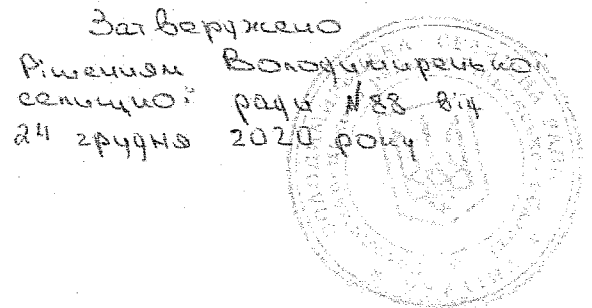 Затверджено
Рішенням Володимирецької
селищної ради №88 від
24 грудня 2020 року